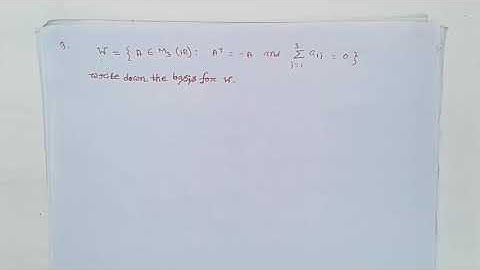 9. W = { A ∈ M₃ (IR) : Aᵀ = -A and ∑_{j=1}^{3} a₁ⱼ = 0 }
write down the basis for W.